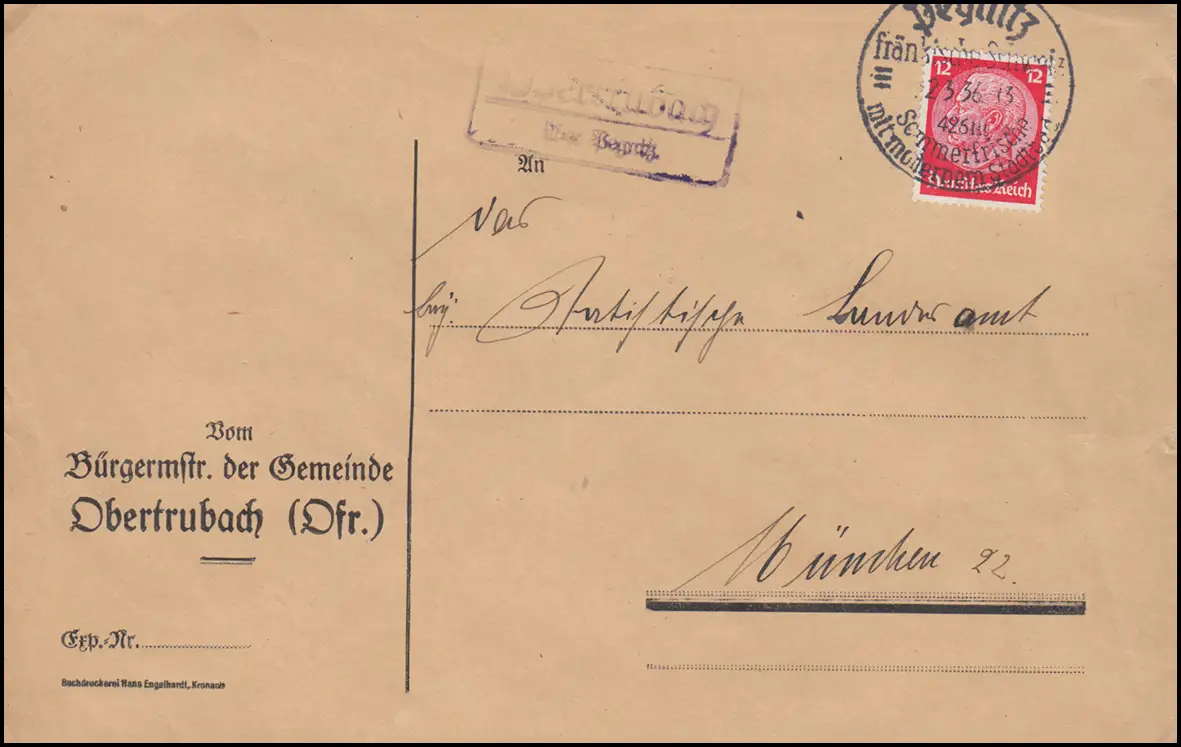 Pegnitz
fränkische Schweiz
2.3.36
Sommerfrische
mit modernem Städt.
12 12
Deutsches Reich
Obertrubach
über Pegnitz.
An
Das
bay. Statistische Landesamt
München 22.
Vom
Bürgermstr. der Gemeinde
Obertrubach (Ofr.)
Exp.-Nr.
Buchdruckerei Hans Engelhardt, Kronach